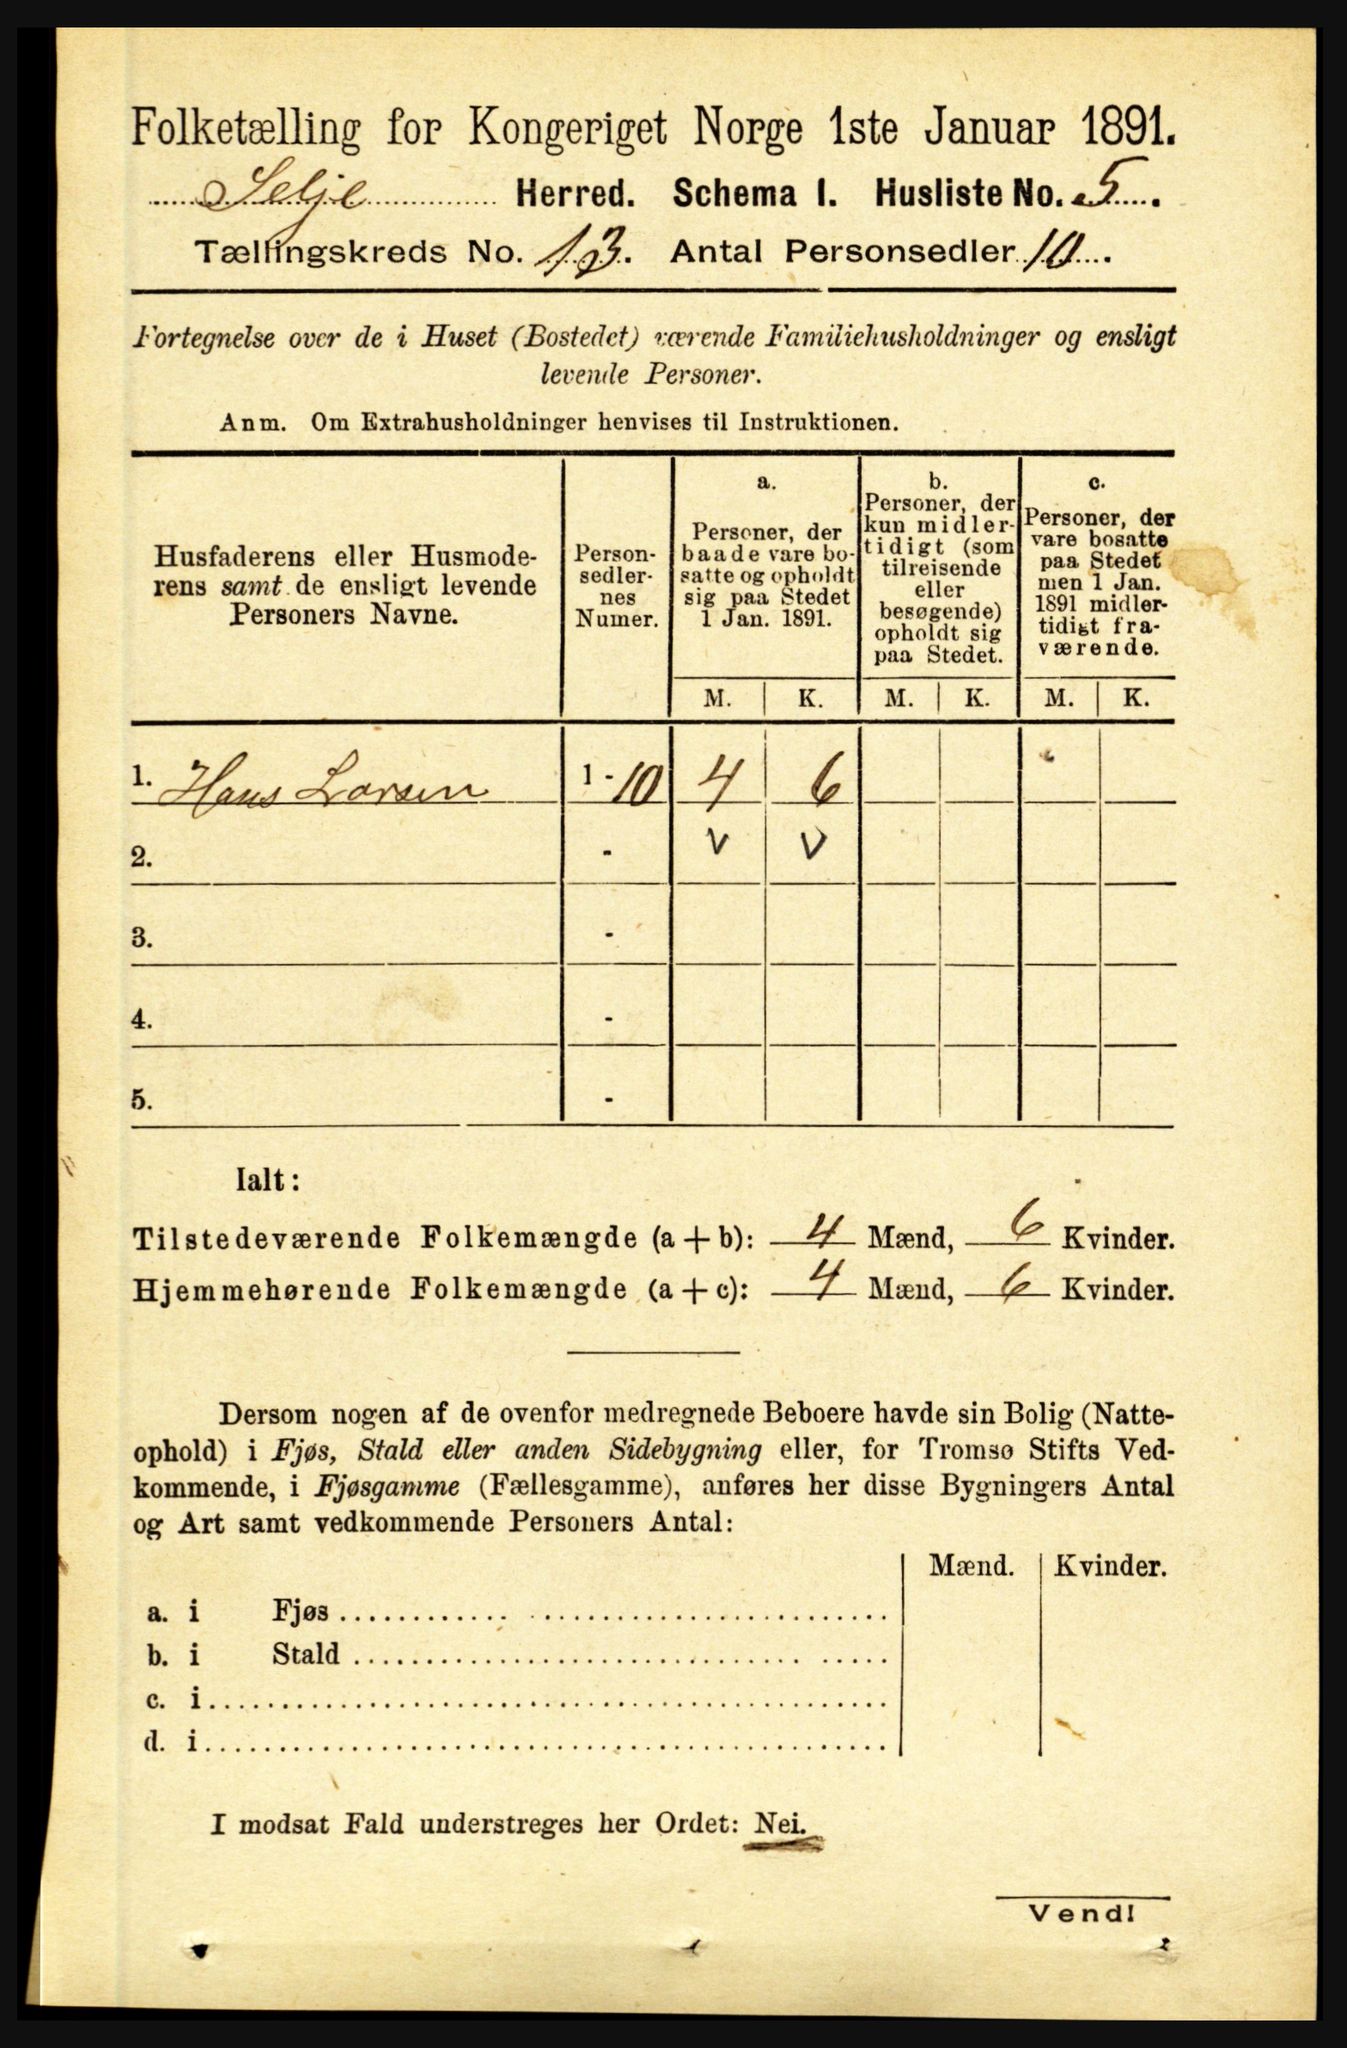 Folketælling for Kongeriget Norge 1ste Januar 1891.
Selje Herred. Schema I. Husliste No. 5.
Tællingskreds No. 13. Antal Personsedler 10.
Fortegnelse over de i Huset (Bostedet) værende Familiehusholdninger og ensligt
levende Personer.
Anm. Om Extrahusholdninger henvises til Instruktionen.
Husfaderens eller Husmode-
rens samt de ensligt levende
Personers Navne.
Person-
sedler-
nes
Numer.
a.
Personer, der
baade vare bo-
satte og opholdt
sig paa Stedet
1 Jan. 1891.
b.
Personer, der
kun midler-
tidigt (som
tilreisende
eller
besøgende)
opholdt sig
paa Stedet.
c.
Personer, der
vare bosatte
paa Stedet
men 1 Jan.
1891 midler-
tidigt fra-
værende.
M. K. M. K. M. K.
1. Hans Larsen 1 - 10 4 6
2. - v v
3. -
4. -
5. -
Ialt:
Tilstedeværende Folkemængde (a + b): 4 Mænd, 6 Kvinder.
Hjemmehørende Folkemængde (a + c): 4 Mænd, 6 Kvinder.
Dersom nogen af de ovenfor medregnede Beboere havde sin Bolig (Natte-
ophold) i Fjøs, Stald eller anden Sidebygning eller, for Tromsø Stifts Ved-
kommende, i Fjøsgamme (Fællesgamme), anføres her disse Bygningers Antal
og Art samt vedkommende Personers Antal:
Mænd. Kvinder.
a. i Fjøs
b. i Stald
c. i
d. i
I modsat Fald understreges her Ordet: Nei.
Vend!